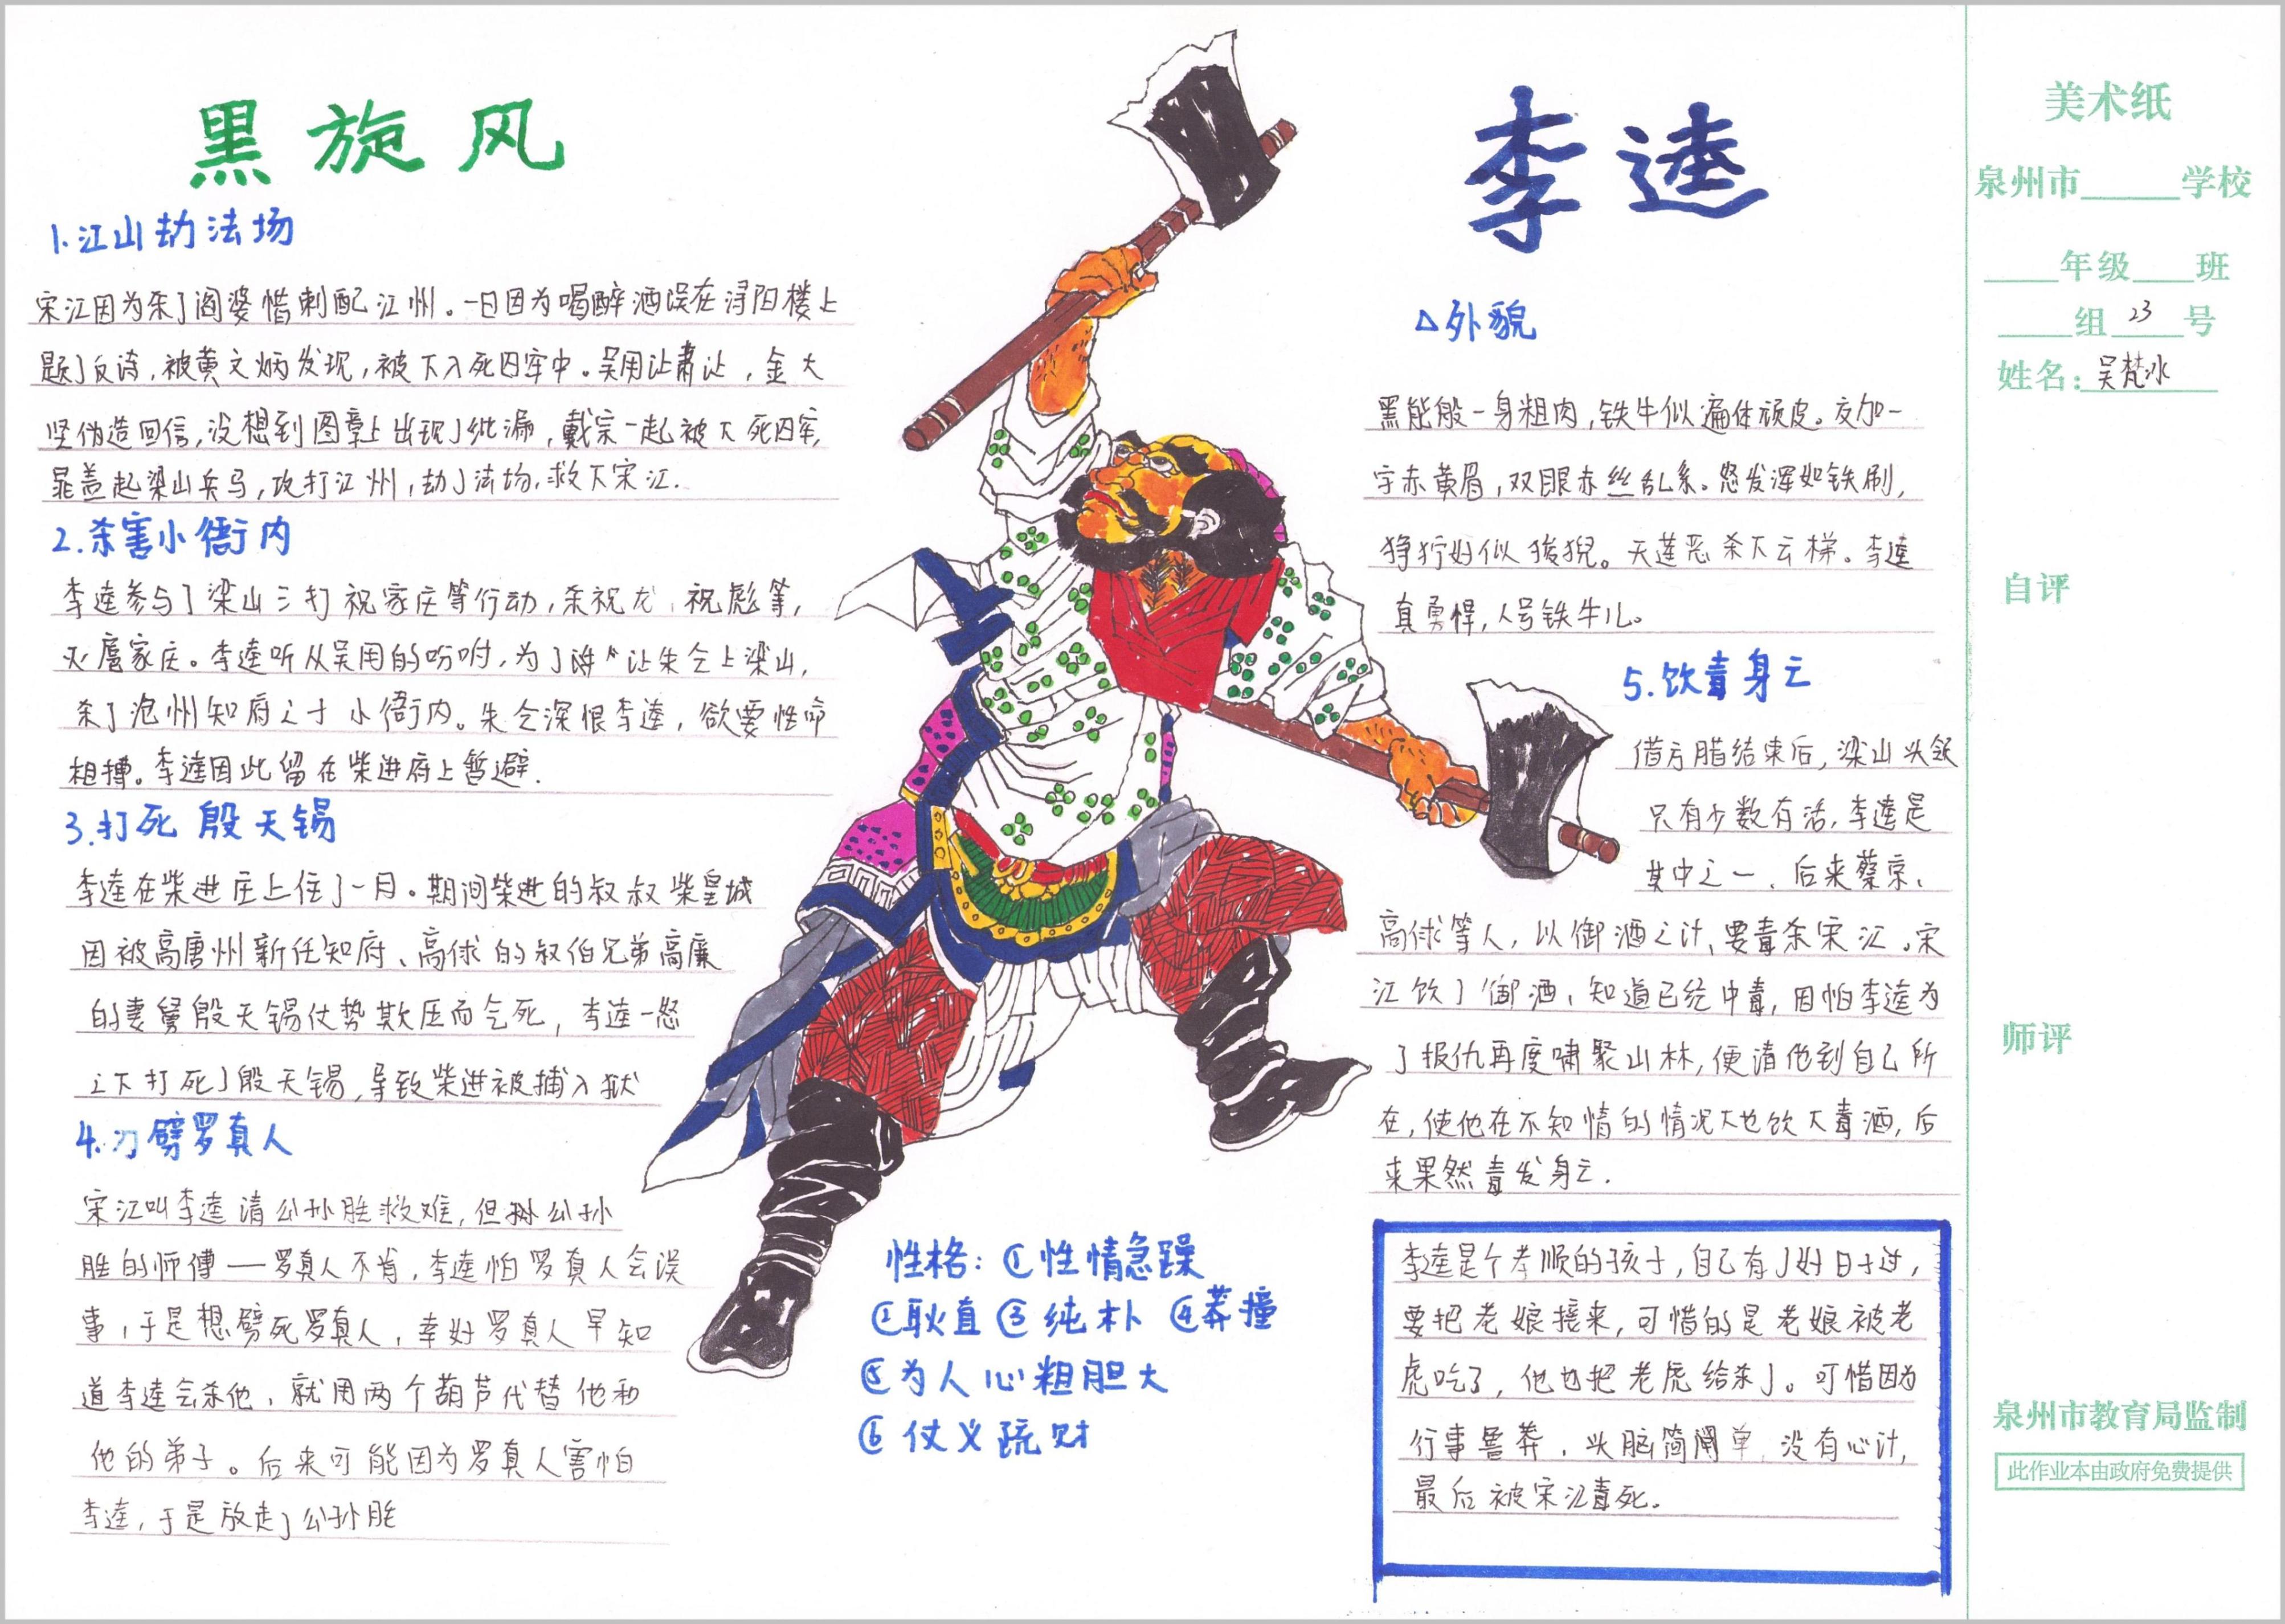 黑旋风
1.江山劫法场
宋江因为杀了阎婆惜刺配江州。一日因为喝醉酒误在浔阳楼上
题了反诗,被黄文炳发现,被下入死囚牢中。吴用让萧让,金大
坚伪造回信,没想到图章上出现了纰漏,戴宗一起被下死囚牢,
晁盖起梁山兵马,攻打江州,劫了法场,救下宋江.
2.杀害小衙内
李逵参与了梁山三打祝家庄等行动,杀祝龙、祝彪等,
灭扈家庄。李逵听从吴用的吩咐,为了 让朱仝上梁山,
杀了沧州知府之子小衙内。朱仝深恨李逵,欲要性命
相搏。李逵因此留在柴进府上暂避.
3.打死殷天锡
李逵在柴进庄上住了一月。期间柴进的叔叔柴皇城
因被高唐州新任知府、高俅的叔伯兄弟高廉
的妻舅殷天锡仗势欺压而气死,李逵一怒
之下打死了殷天锡,导致柴进被捕入狱
4.刀劈罗真人
宋江叫李逵请公孙胜救难,但 公孙
胜的师傅一罗真人不肯,李逵怕罗真人会误
事,于是想劈死罗真人,幸好罗真人早知
道李逵会杀他,就用两个葫芦代替他和
他的弟子。后来可能因为罗真人害怕
李逵,于是放走了公孙胜
性格:①性情急躁
②耿直③纯朴④莽撞
⑤为人心粗胆大
⑥仗义疏财
李逵
△外貌
黑熊般一身粗肉,铁牛似遍体顽皮。交加一
字赤黄眉,双眼赤丝乱系。怒发浑如铁刷,
狰狞好似狻猊。天蓬恶杀下云梯。李逵
真勇悍,人号铁牛儿。
5.饮毒身亡
借方腊结束后,梁山头领
只有少数有活,李逵是
其中之一、后来蔡京、
高俅等人,以御酒之计,要毒杀宋江。宋
江饮了御酒,知道已经中毒,因怕李逵为
了报仇再度啸聚山林,便请他到自己所
在,使他在不知情的情况下也饮下毒酒,后
来果然毒发身亡.
李逵是个孝顺的孩子,自己有了好日子过,
要把老娘接来,可惜的是老娘被老
虎吃了,他也把老虎给杀了。可惜因为
行事鲁莽,头脑简单,没有心计,
最后被宋江毒死。
美术纸
泉州市_____学校
____年级___班
____组 23 号
姓名:吴梵冰
自评
师评
泉州市教育局监制
此作业本由政府免费提供